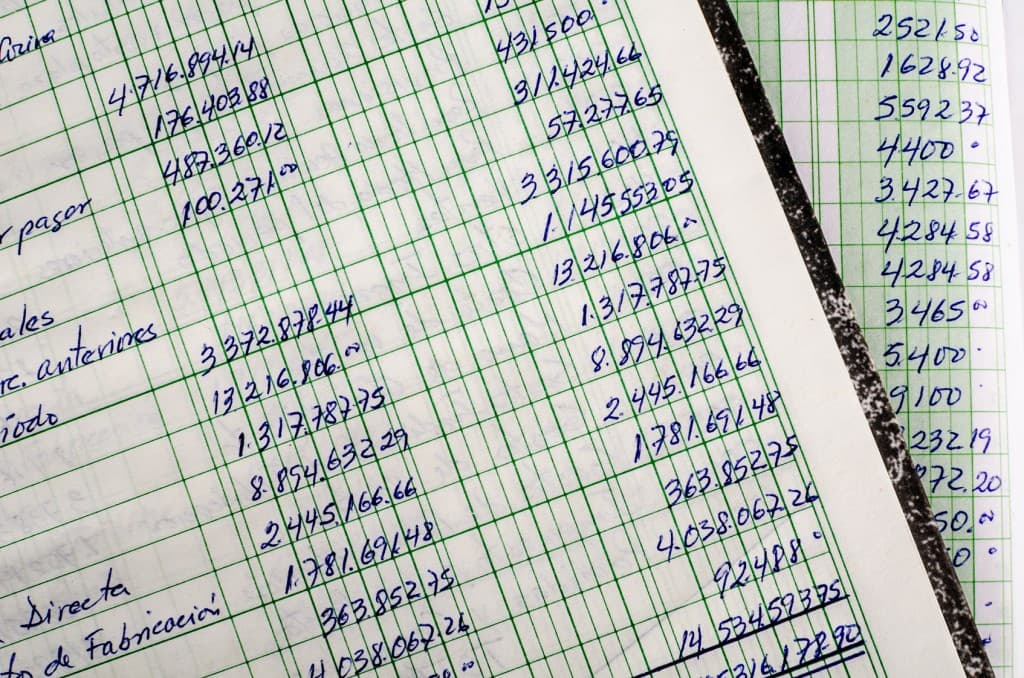 pagar
ales
rc. anteriores
íodo
Directa
de Fabricación
4.716.894.14
176.403.88
487.360.12
100.271.00
3 372.878.44
13 216.806.00
1.317.787.75
8.854.632 29
2.445.166.66
1.781.691.48
363.852.75
4 038.067.26
431500.
311.424.66
57.277.65
3 315 600.79
1.145 553 05
13 216.806.00
1.317.787.75
8.894.632 29
2.445.166 66
1 781.691 48
363.852 75
4.038.067.26
92488
2521.50
1628.92
5592 37
4400
3.427.67
4284 58
4284 58
3465 00
5.400
9100
232 19
72.20
50.00
0